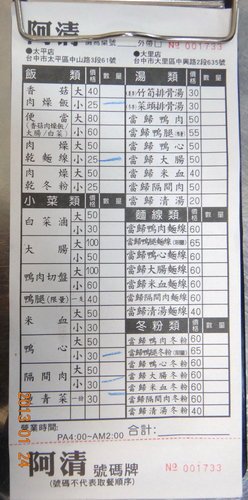 阿清
外帶□
№ 001733
●太平店
台中市太平區中山路3段61號
●大里店
台中市大里區中興路2段635號
飯類 價格 數量
香菇肉燥飯 大 40
小 25
便當
(香菇肉燥飯/大腸/白菜) 大 80
小 60
肉燥乾麵線 大 50
小 25
肉燥乾冬粉 大 50
小 25
小菜類 價格 數量
白菜滷 大 50
小 30
大腸 大 100
小 50
鴨肉切盤 大 100
小 60
鴨腿(限量) 一支 40
米血 大 50
小 30
鴨心 大 50
小 30
隔間肉 大 50
小 30
青菜 一份 30
湯類 價格 數量
竹筍排骨湯 30
菜頭排骨湯 30
當歸鴨肉湯 50
當歸鴨腿湯 55
當歸鴨心湯 50
當歸大腸湯 50
當歸米血湯 30
當歸隔間肉 50
當歸清湯 20
麵線類 價格 數量
當歸鴨肉麵線 60
當歸鴨腿麵線 65
當歸鴨心麵線 60
當歸大腸麵線 60
當歸米血麵線 50
當歸隔間肉麵線 60
當歸清湯麵線 40
冬粉類 價格 數量
當歸鴨肉冬粉 60
當歸鴨腿冬粉 65
當歸鴨心冬粉 60
當歸大腸冬粉 60
當歸米血冬粉 50
當歸隔間肉冬粉 60
當歸清湯冬粉 40
營業時間:
PA4:00~AM2:00
合計:
阿清 號碼牌
(號碼不代表取餐順序)
№ 001733
2013/01/24